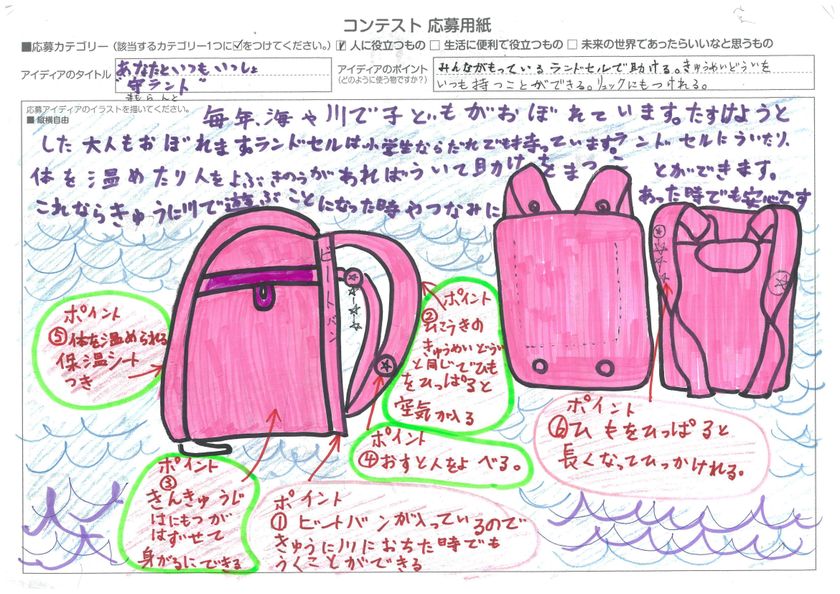 コンテスト 応募用紙
■応募カテゴリー（該当するカテゴリー1つに☑をつけてください。） ☑ 人に役立つもの □ 生活に便利で役立つもの □ 未来の世界であったらいいなと思うもの
アイディアのタイトル
あなたといつもいっしょ
"守ランド"
まもらんど
アイディアのポイント
（どのように使う物ですか？）
みんながもっているランドセルで助ける。きゅうめいどういを
いつも持つことができる。リュックにもつけれる。
応募アイディアのイラストを描いてください。
■ 縦横自由
毎年、海や川で子どもがおぼれています。たすけようと
した大人もおぼれます。ランドセルは小学生ならだれでも持っています。ランドセルにういたり、
体を温めたり人をよぶきのうがあればういて助けをまつことができます。
これならきゅうに川で遊ぶことになった時やつなみにあった時でも安心です
ビートバン
ポイント
⑤体を温められる
保温シート
つき
ポイント
②ひこうきの
きゅうめいどうい
と同じでひも
をひっぱると
空気が入る
ポイント
④おすと人をよべる。
ポイント
⑥ひもをひっぱると
長くなってひっかけれる。
ポイント
③
きんきゅうじ
はにもつが
はずせて
身がるにできる
ポイント
①ビートバンが入っているので
きゅうに川におちた時でも
うくことができる